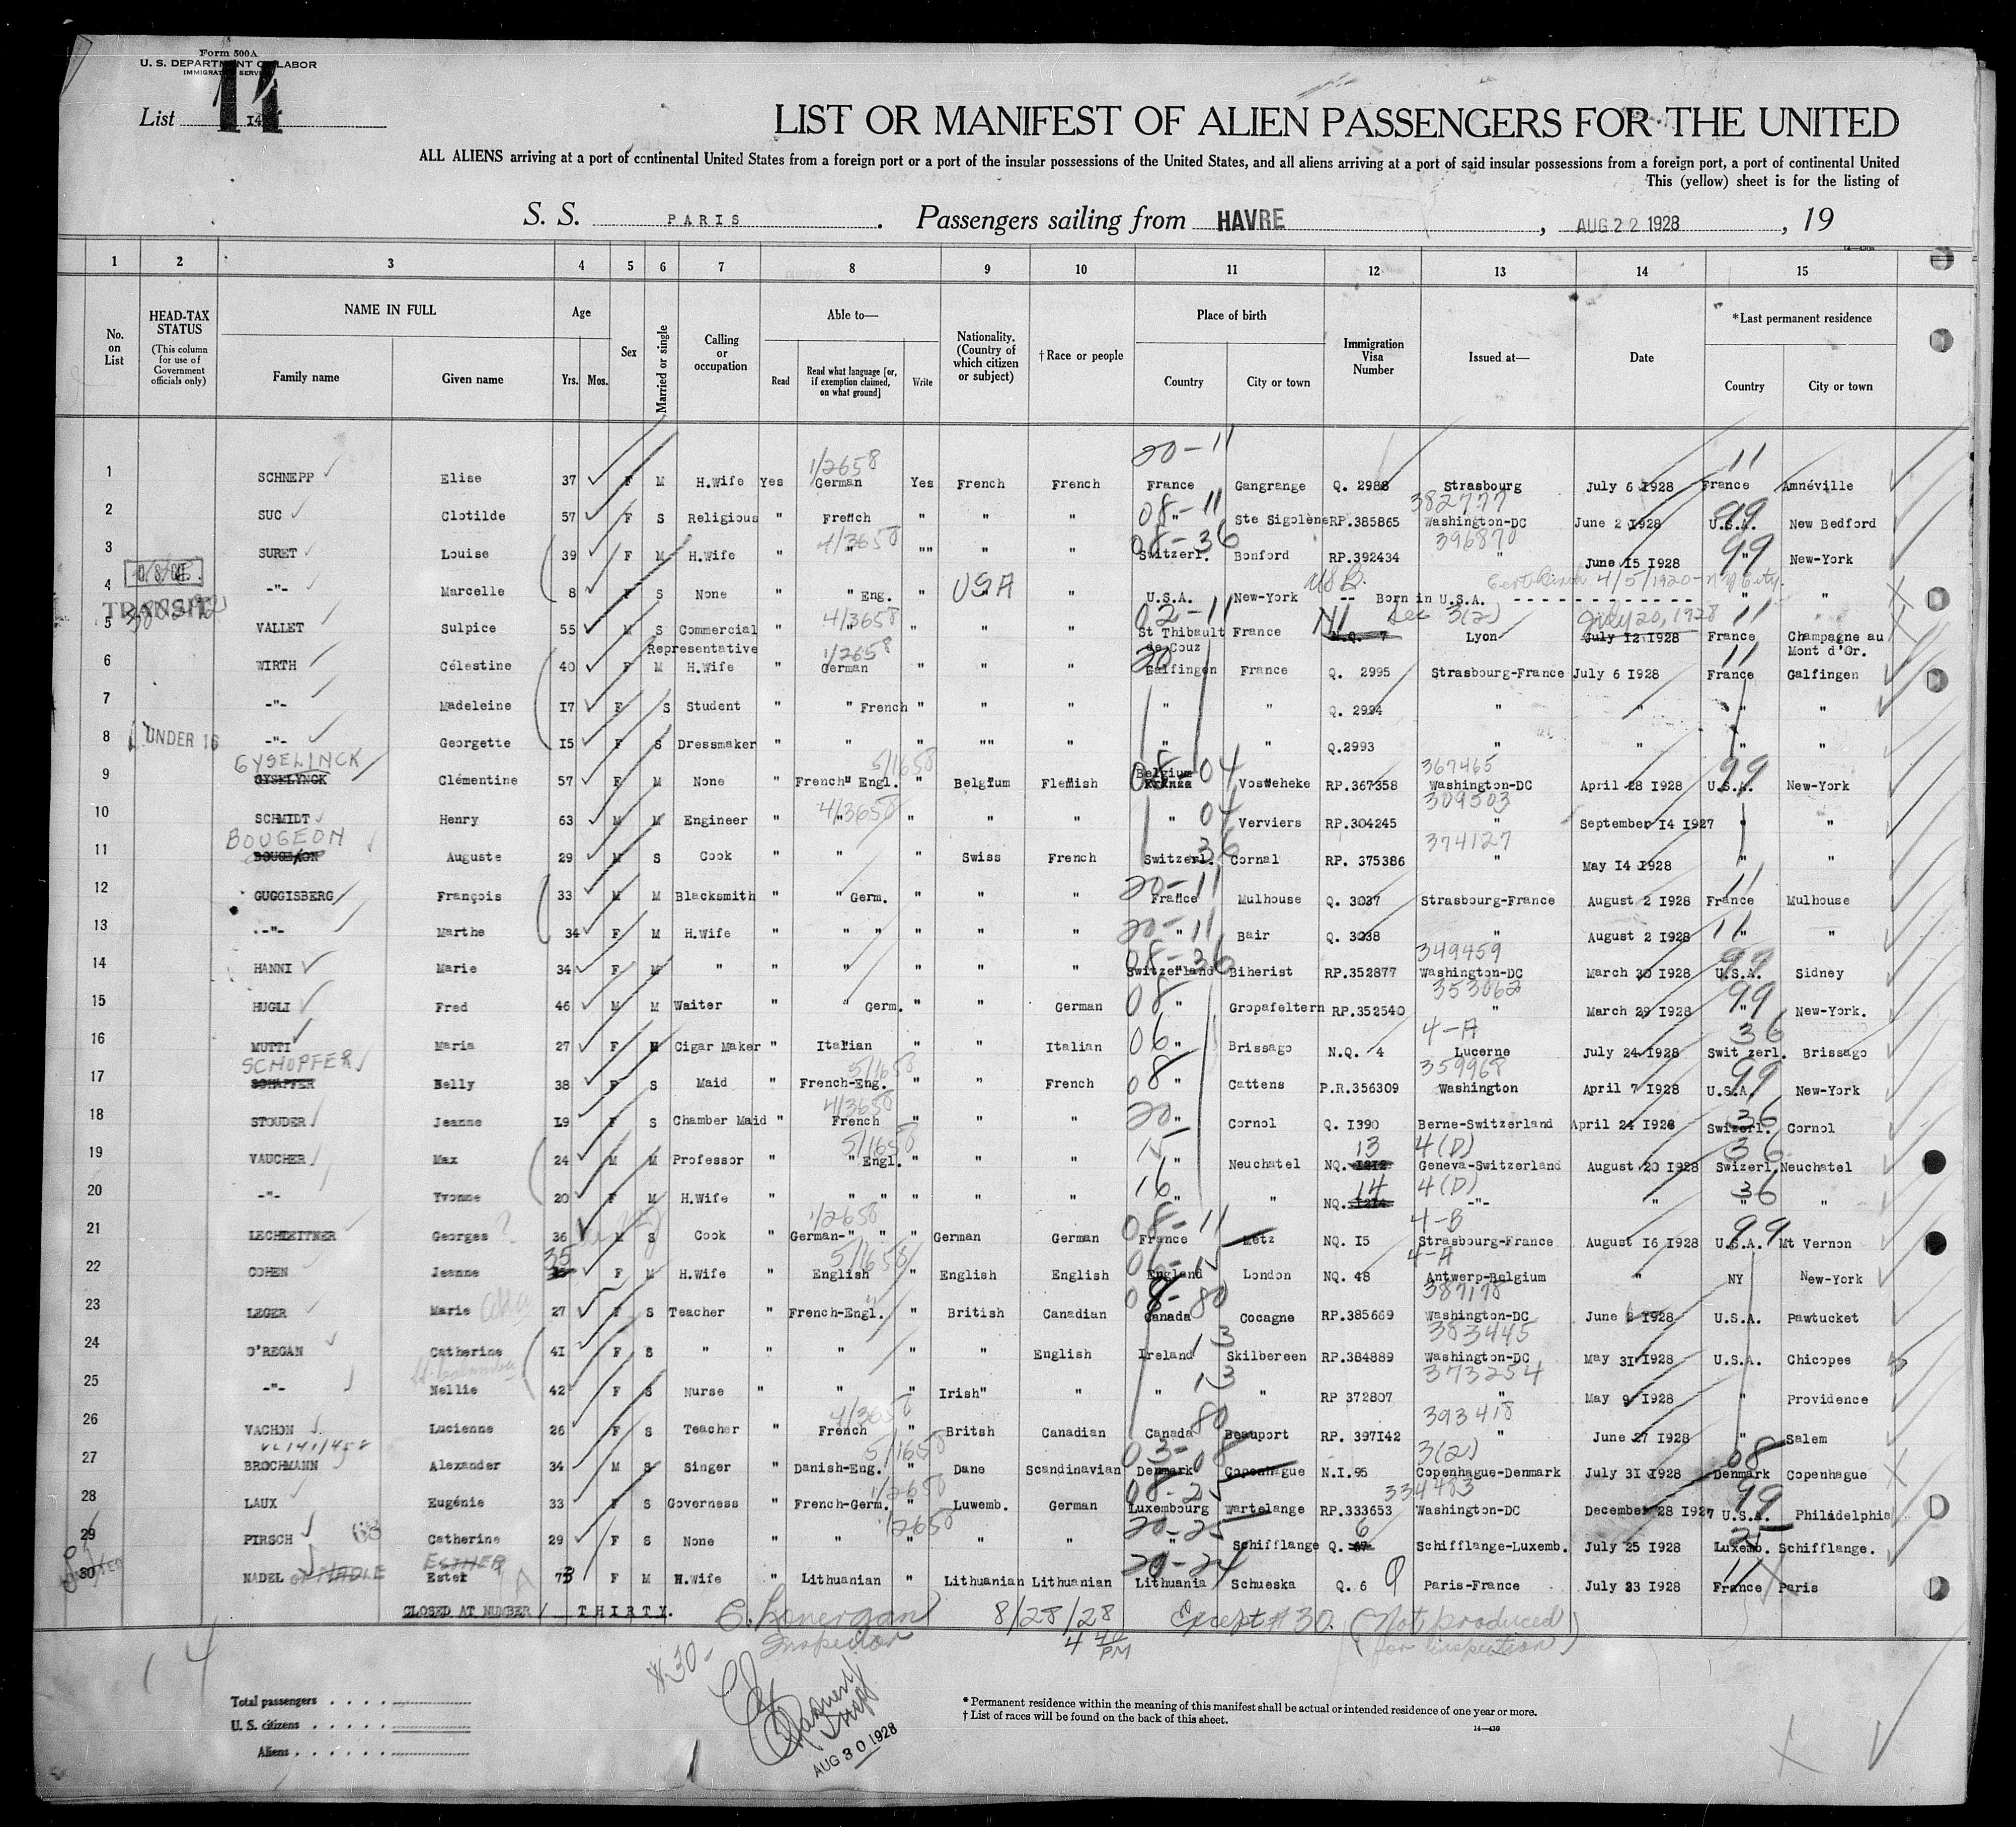 Form 500A
U. S. DEPARTMENT OF LABOR
IMMIGRATION SERVICE
List 14
14
LIST OR MANIFEST OF ALIEN PASSENGERS FOR THE UNITED
ALL ALIENS arriving at a port of continental United States from a foreign port or a port of the insular possessions of the United States, and all aliens arriving at a port of said insular possessions from a foreign port, a port of continental United
This (yellow) sheet is for the listing of
S. S. PARIS. Passengers sailing from HAVRE, AUG 22 1928, 19
1 2 3 4 5 6 7 8 9 10 11 12 13 14 15
No. on List
HEAD-TAX STATUS (This column for use of Government officials only)
NAME IN FULL
Family name Given name
Age
Yrs. Mos.
Sex
Married or single
Calling or occupation
Able to—
Read Read what language [or, if exemption claimed, on what ground] Write
Nationality. (Country of which citizen or subject)
†Race or people
Place of birth
Country City or town
Immigration Visa Number
Issued at—
Date
*Last permanent residence
Country City or town
20-11 11
1/2658
1 SCHNEPP Elise 37 F M H.Wife Yes German Yes French French France Gangrange Q. 2988 Strasbourg July 6 1928 France Amnéville
08-11 382777 99
2 SUC Clotilde 57 F S Religious " French " " " " Ste Sigolène RP.385865 Washington-DC June 2 1928 U.S.A. New Bedford
4/3658 08-36 396870 99
3 SURET Louise 39 F M H.Wife " " "" " " Switzerl. Bonford RP.392434 June 15 1928 " New-York
4 -"- Marcelle 8 F S None " " Eng. " USA " U.S.A. New-York -- Born in U.S.A. 4/5/1920-N Y City. " "
TRANSIT
4/3658 02-11 NI Sec 3(2) July 20, 1928 11
5 VALLET Sulpice 55 M S Commercial Representative " " " " " St Thibault de Couz France N.Q. 7 Lyon July 12 1928 France Champagne au Mont d'Or.
1/2658 20 11
6 WIRTH Célestine 40 F M H.Wife " German " " " Galfingen France Q. 2995 Strasbourg-France July 6 1928 France Galfingen
7 -"- Madeleine 17 F S Student " " French " " " " " Q. 2994 " " " "
8 UNDER 16 -"- Georgette 15 F S Dressmaker " " " "" " " " Q.2993 " " " "
GYSELINCK 5/1658 08-04 367465 99
9 GYSELYNCK Clémentine 57 F M None " French" Engl. " Belgium Flemish Belgium France Vosweheke RP.367358 Washington-DC April 28 1928 U.S.A. New-York
4/3658 04 309503
10 SCHMIDT Henry 63 M M Engineer " " " " " " Verviers RP.304245 " September 14 1927 " "
BOUGEON 36 374127
11 BOUGEAON Auguste 29 M S Cook " " " Swiss French Switzerl. Cornal RP. 375386 " May 14 1928 " "
20-11 11
12 GUGGISBERG François 33 M M Blacksmith " " Germ. " " " France Mulhouse Q. 3037 Strasbourg-France August 2 1928 France Mulhouse
20-11 11
13 -"- Marthe 34 F M H.Wife " " " " " " " Bair Q. 3038 " August 2 1928 " "
08-36 349459 99
14 HANNI Marie 34 F M " " " " " " Switzerland Biherist RP.352877 Washington-DC March 30 1928 U.S.A. Sidney
08 353062 99
15 HUGLI Fred 46 M M Waiter " " Germ. " " German " Gropafeltern RP.352540 " March 29 1928 " New-York.
06 4-A 36
16 MUTTI Maria 27 F M Cigar Maker " Italian " " Italian " Brissago N.Q. 4 Lucerne July 24 1928 Switzerl. Brissago
SCHOPFER 5/1658 08 359968 99
17 Nelly 38 F S Maid " French-Eng. " " French " Cattens P.R.356309 Washington April 7 1928 U.S.A. New-York
4/3658 20 36
18 STOUDER Jeanne 19 F S Chamber Maid " French " " " " Cornol Q. 1390 Berne-Switzerland April 24 1928 Swizerl. Cornol
5/1658 15 13 4(D) 36
19 VAUCHER Max 24 M M Professor " " Engl. " " " " Neuchatel NQ. 1212 Geneva-Switzerland August 20 1928 Swizerl. Neuchatel
16 14 4(D) 36
20 -"- Yvonne 20 F M H.Wife " " " " " " " " NQ. 1214 -"- " " "
1/2658 08-11 4-B 99
21 LECHLEITNER Georges ? 36 M S Cook " German-" " " German German France Metz NQ. 15 Strasbourg-France August 16 1928 U.S.A. Mt Vernon
35 5/1658 4-A
22 COHEN Jeanne F M H.Wife " English " English English England London NQ. 48 Antwerp-Belgium " NY New-York
08-80 387178
23 LEGER Marie 27 F S Teacher " French-Engl. " British Canadian Canada Cocagne RP.385669 Washington-DC June 2 1928 U.S.A. Pawtucket
13 383445
24 O'REGAN Catherine 41 F S " " " " " English Ireland Skilbereen RP.384889 Washington-DC May 31 1928 U.S.A. Chicopee
13 373254
25 -"- Nellie 42 F S Nurse " " " Irish" " " " RP 372807 " May 9 1928 " Providence
4/3658 80 393418
26 VACHON Lucienne 26 F S Teacher " French " Britsh Canadian Canada Beauport RP. 397142 " June 27 1928 " Salem
5/1658 03-08 3(2) 08
27 BROCHMANN Alexander 34 M S Singer " Danish-Eng. " Dane Scandinavian Denmark Copenhague N.I.95 Copenhague-Denmark July 31 1928 Denmark Copenhague
1/2650 08-25 334483 99
28 LAUX Eugénie 33 F S Governess " French-Germ. " Luwemb. German Luxembourg Wartelange RP.333653 Washington-DC December 28 1927 U.S.A. Philadelphia
12650 20-25 6 25
29 PIRSCH Catherine 29 F S None " " " " " " Schifflange Q. 67 Schifflange-Luxemb. July 25 1928 Luxemb. Schifflange.
ESTHER 20-24 9 11
30 NADEL or NADLE Ester 73 F M H.Wife " Lithuanian " Lithuanian Lithuanian Lithuania Schueska Q. 6 Paris-France July 23 1928 France Paris
CLOSED AT NUMBER / THIRTY. C. Lonergan Inspector 8/28/28 4 40 PM Except #30. (Not produced for inspection)
#30-
AUG 30 1928
Total passengers
U. S. citizens
Aliens
* Permanent residence within the meaning of this manifest shall be actual or intended residence of one year or more.
† List of races will be found on the back of this sheet.
14—430